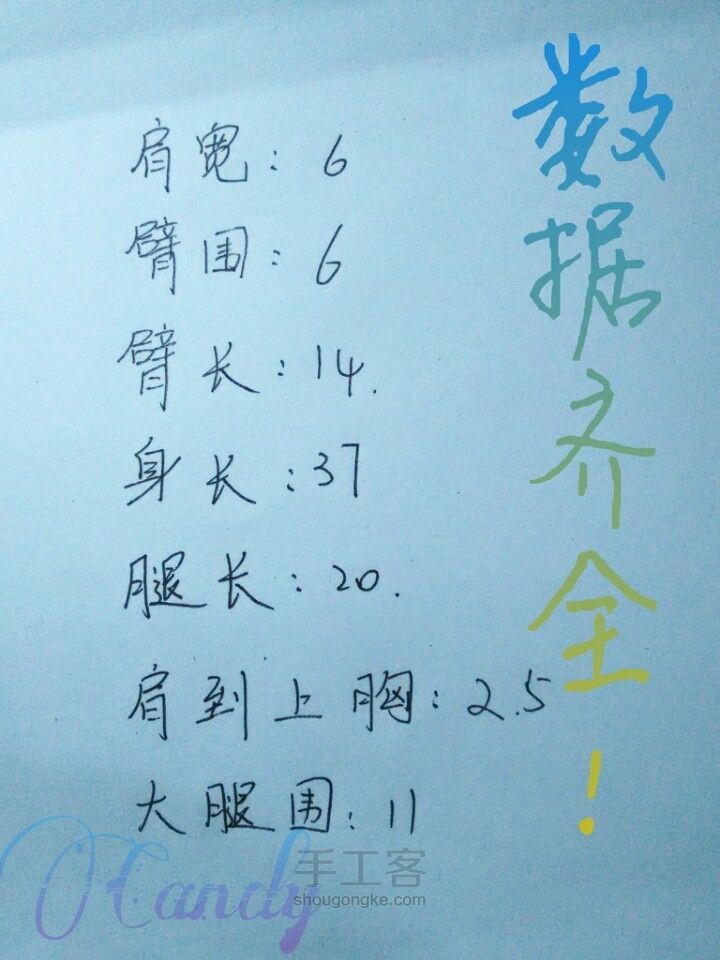 肩宽：6
臂围：6
臂长：14.
身长：37
腿长：20.
肩到上胸：2.5
大腿围：11
数据齐全！
Candy
手工客
shougongke.com